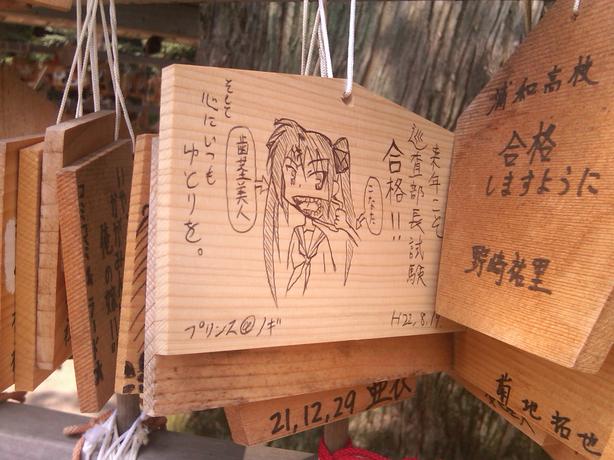 来年こそ
巡査部長試験
合格!!
こなた
歯茎美人
そして
心にいつも
ゆとりを。
プリンス@ノギ
H22.8.19
浦和高校
合格
しますように
野崎祐里
21,12,29
菊地拓也